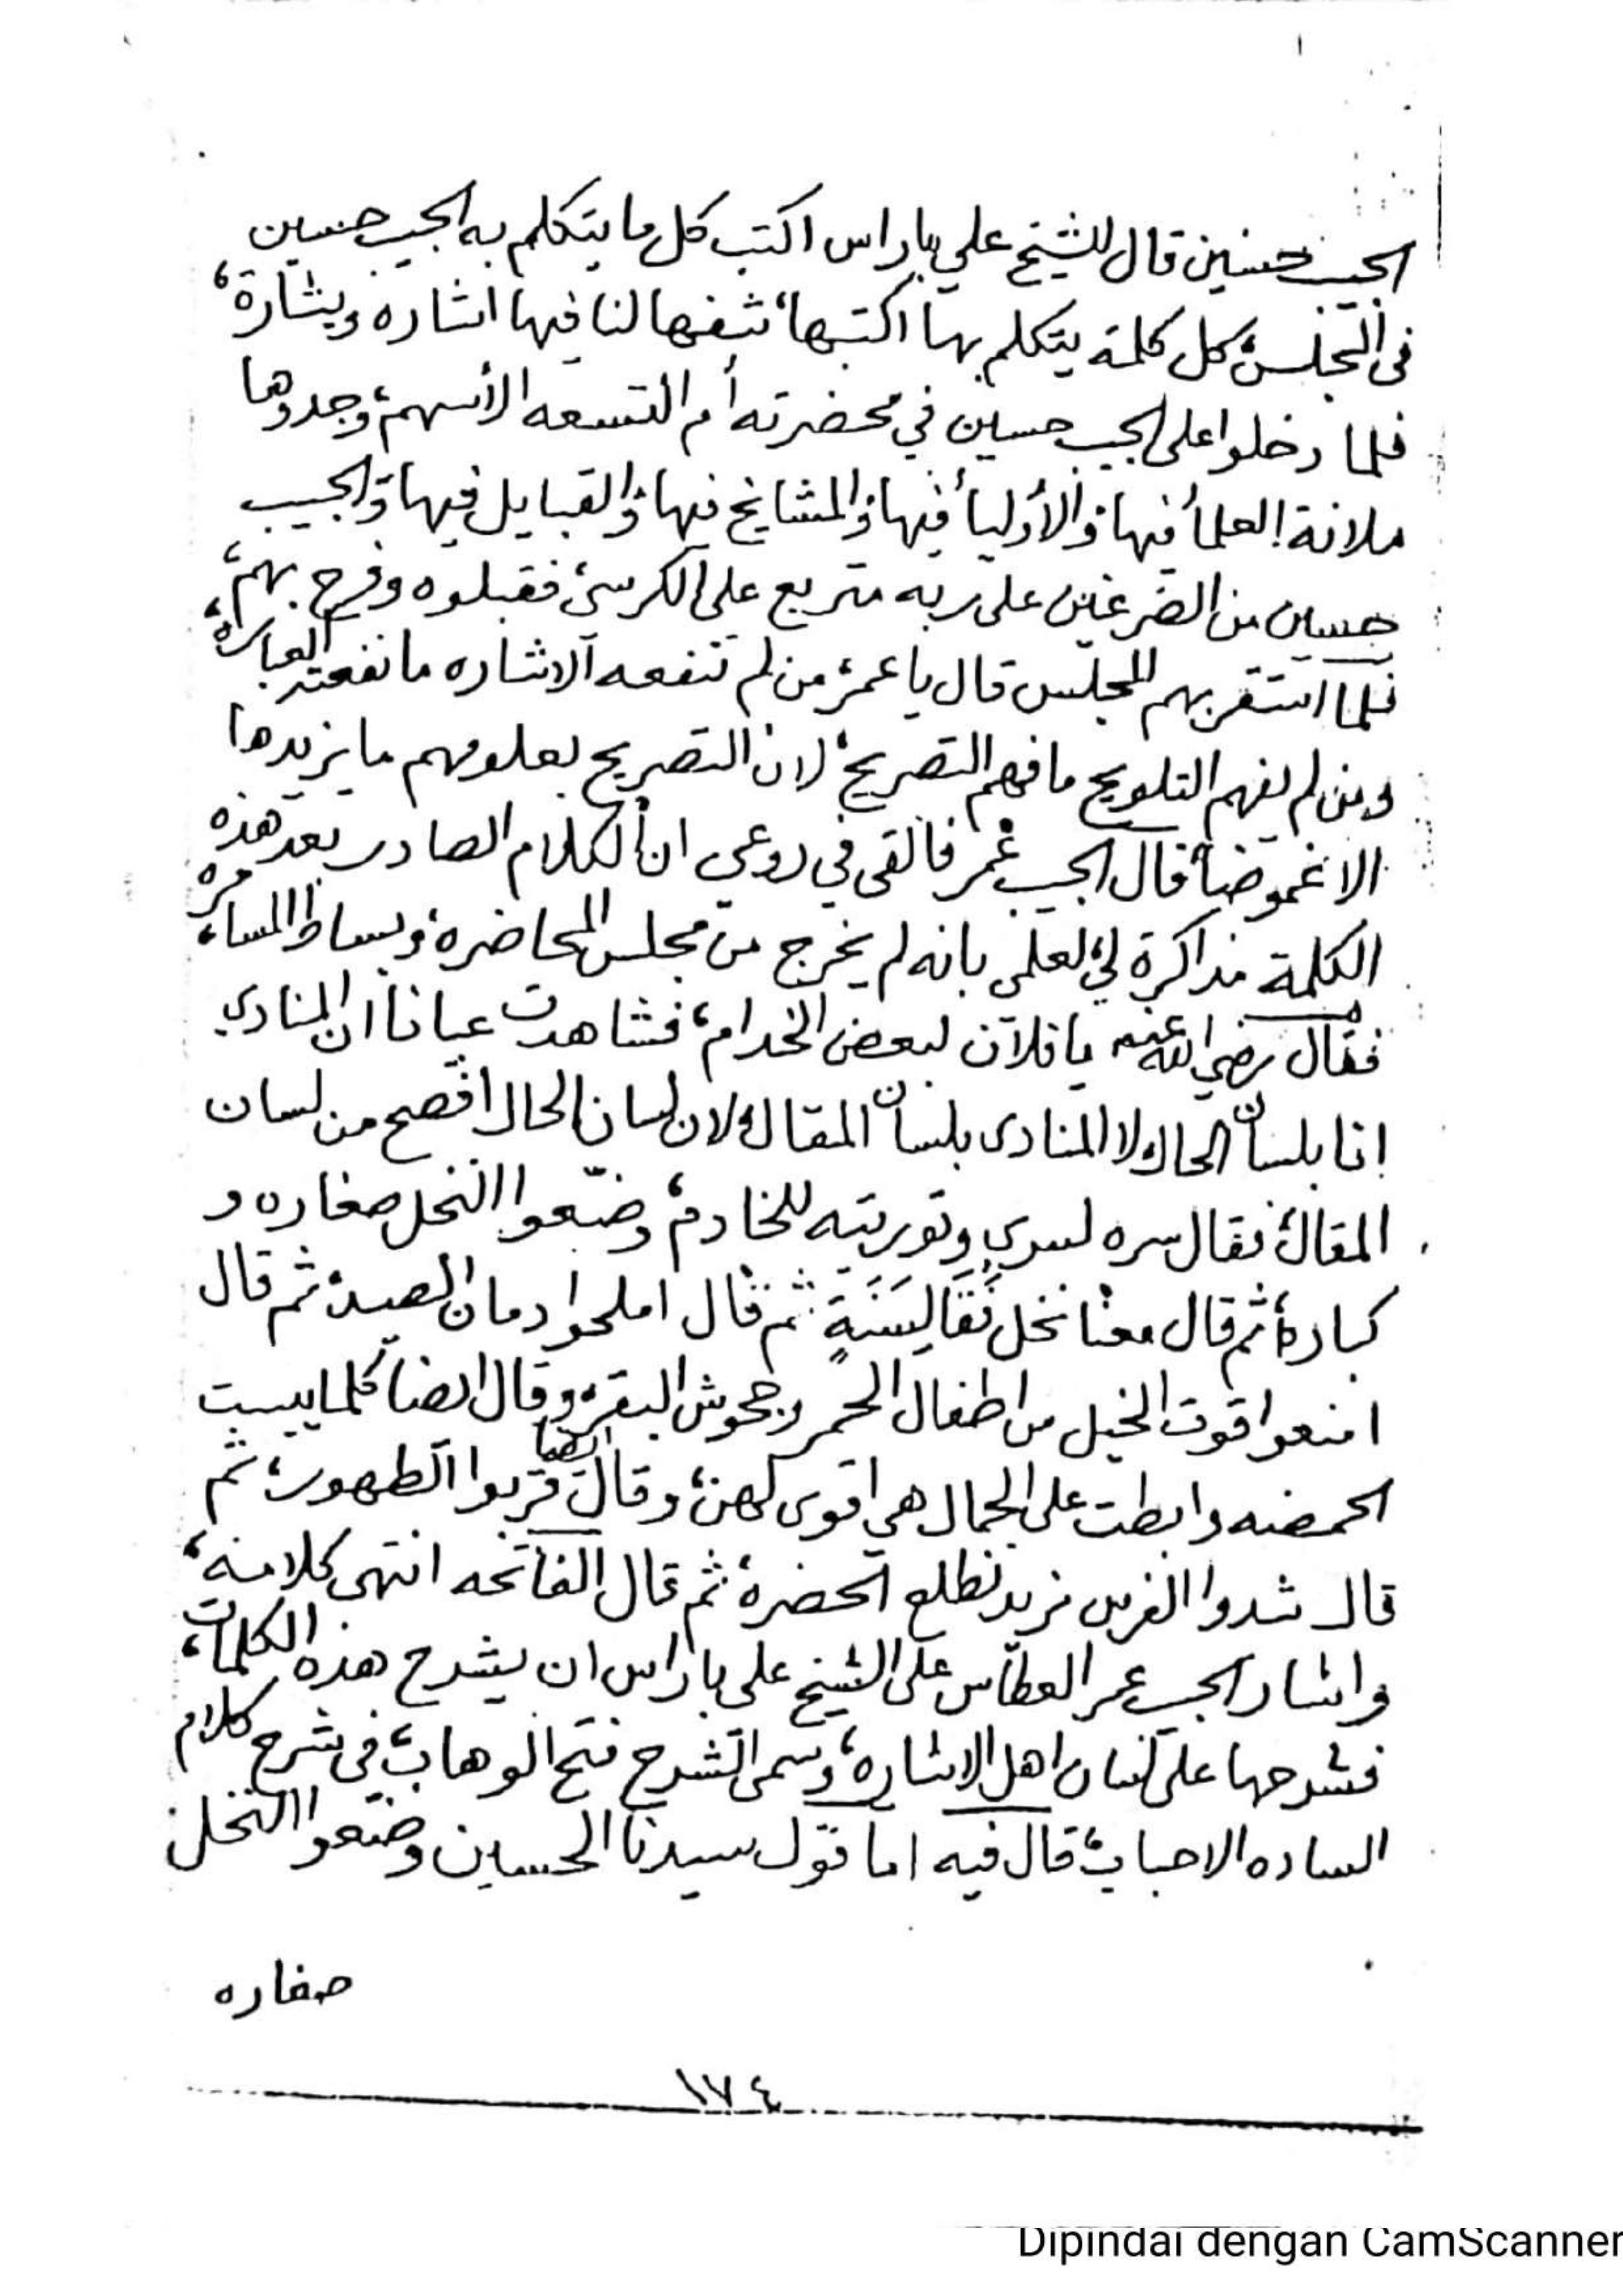 الحبيب حسين قال للشيخ علي باراس اكتب كل ما يتكلم به الحبيب حسين
في المجلس، كل كلمة يتكلم بها اكتبها، شفها لنا فيها اشاره وبشارة،
فلما دخلوا على الحبيب حسين في محضرته أم التسعه الأسهم، وجدوها
ملانة! العلمأ فيها، والأوليأ فيها، والمشايخ فيها، والقبايل فيها، والحبيب
حسين من على ربه متربع على الكرسي، فقبلوه وفرح بهم،
فلما استقر بهم المجلس قال يا عمر، من لم تنفعه الاشاره ما نفعته العباره
ومن لم يفهم التلويح ما فهم التصريح، لان التصريح بعلومهم ما يزيدها
الا غموضاً، قال الحبيب عمر فالقى في روعي ان الكلام الصادر بعد هذه
الكلمة مذاكرة لي، لعلمي بانه لم يخرج من مجلس المحاضره، وبساط المسامره،
فقال رضي الله عنه يا فلان لبعض الخدام، فشاهدت عياناً ان المنادي
انا بلسان الحال، لا المنادى بلسان المقال، لان لسان الحال افصح من لسان
المقال، فقال سره لسري وتوريته للخادم، وضّعوا النخل صغاره و
كباره، ثم قال معنا نخل ثم قال املحوا دمان الصيد، ثم قال
امنعوا قوت الخيل من اطفال الحمر وجحوش البقر، وقال ايضا كلما يبست
الحمضه وابطت على الجمال هي اقوى لهن، وقال ايضا قربوا الطهور، ثم
قال شدوا الفرس نريد نطلع الحضره، ثم قال الفاتحه انتهى كلامه،
واشار الحبيب عمر العطاس على الشيخ علي باراس ان يشرح هذه الكلمات،
فشرحها على لسان اهل الاشاره، وسمى الشرح فتح الوهاب، في شرح كلام
الساده الاحباب، قال فيه اما قول سيدنا الحسين وضّعوا النخل
صغاره
١٧٤
Dipindai dengan CamScanner